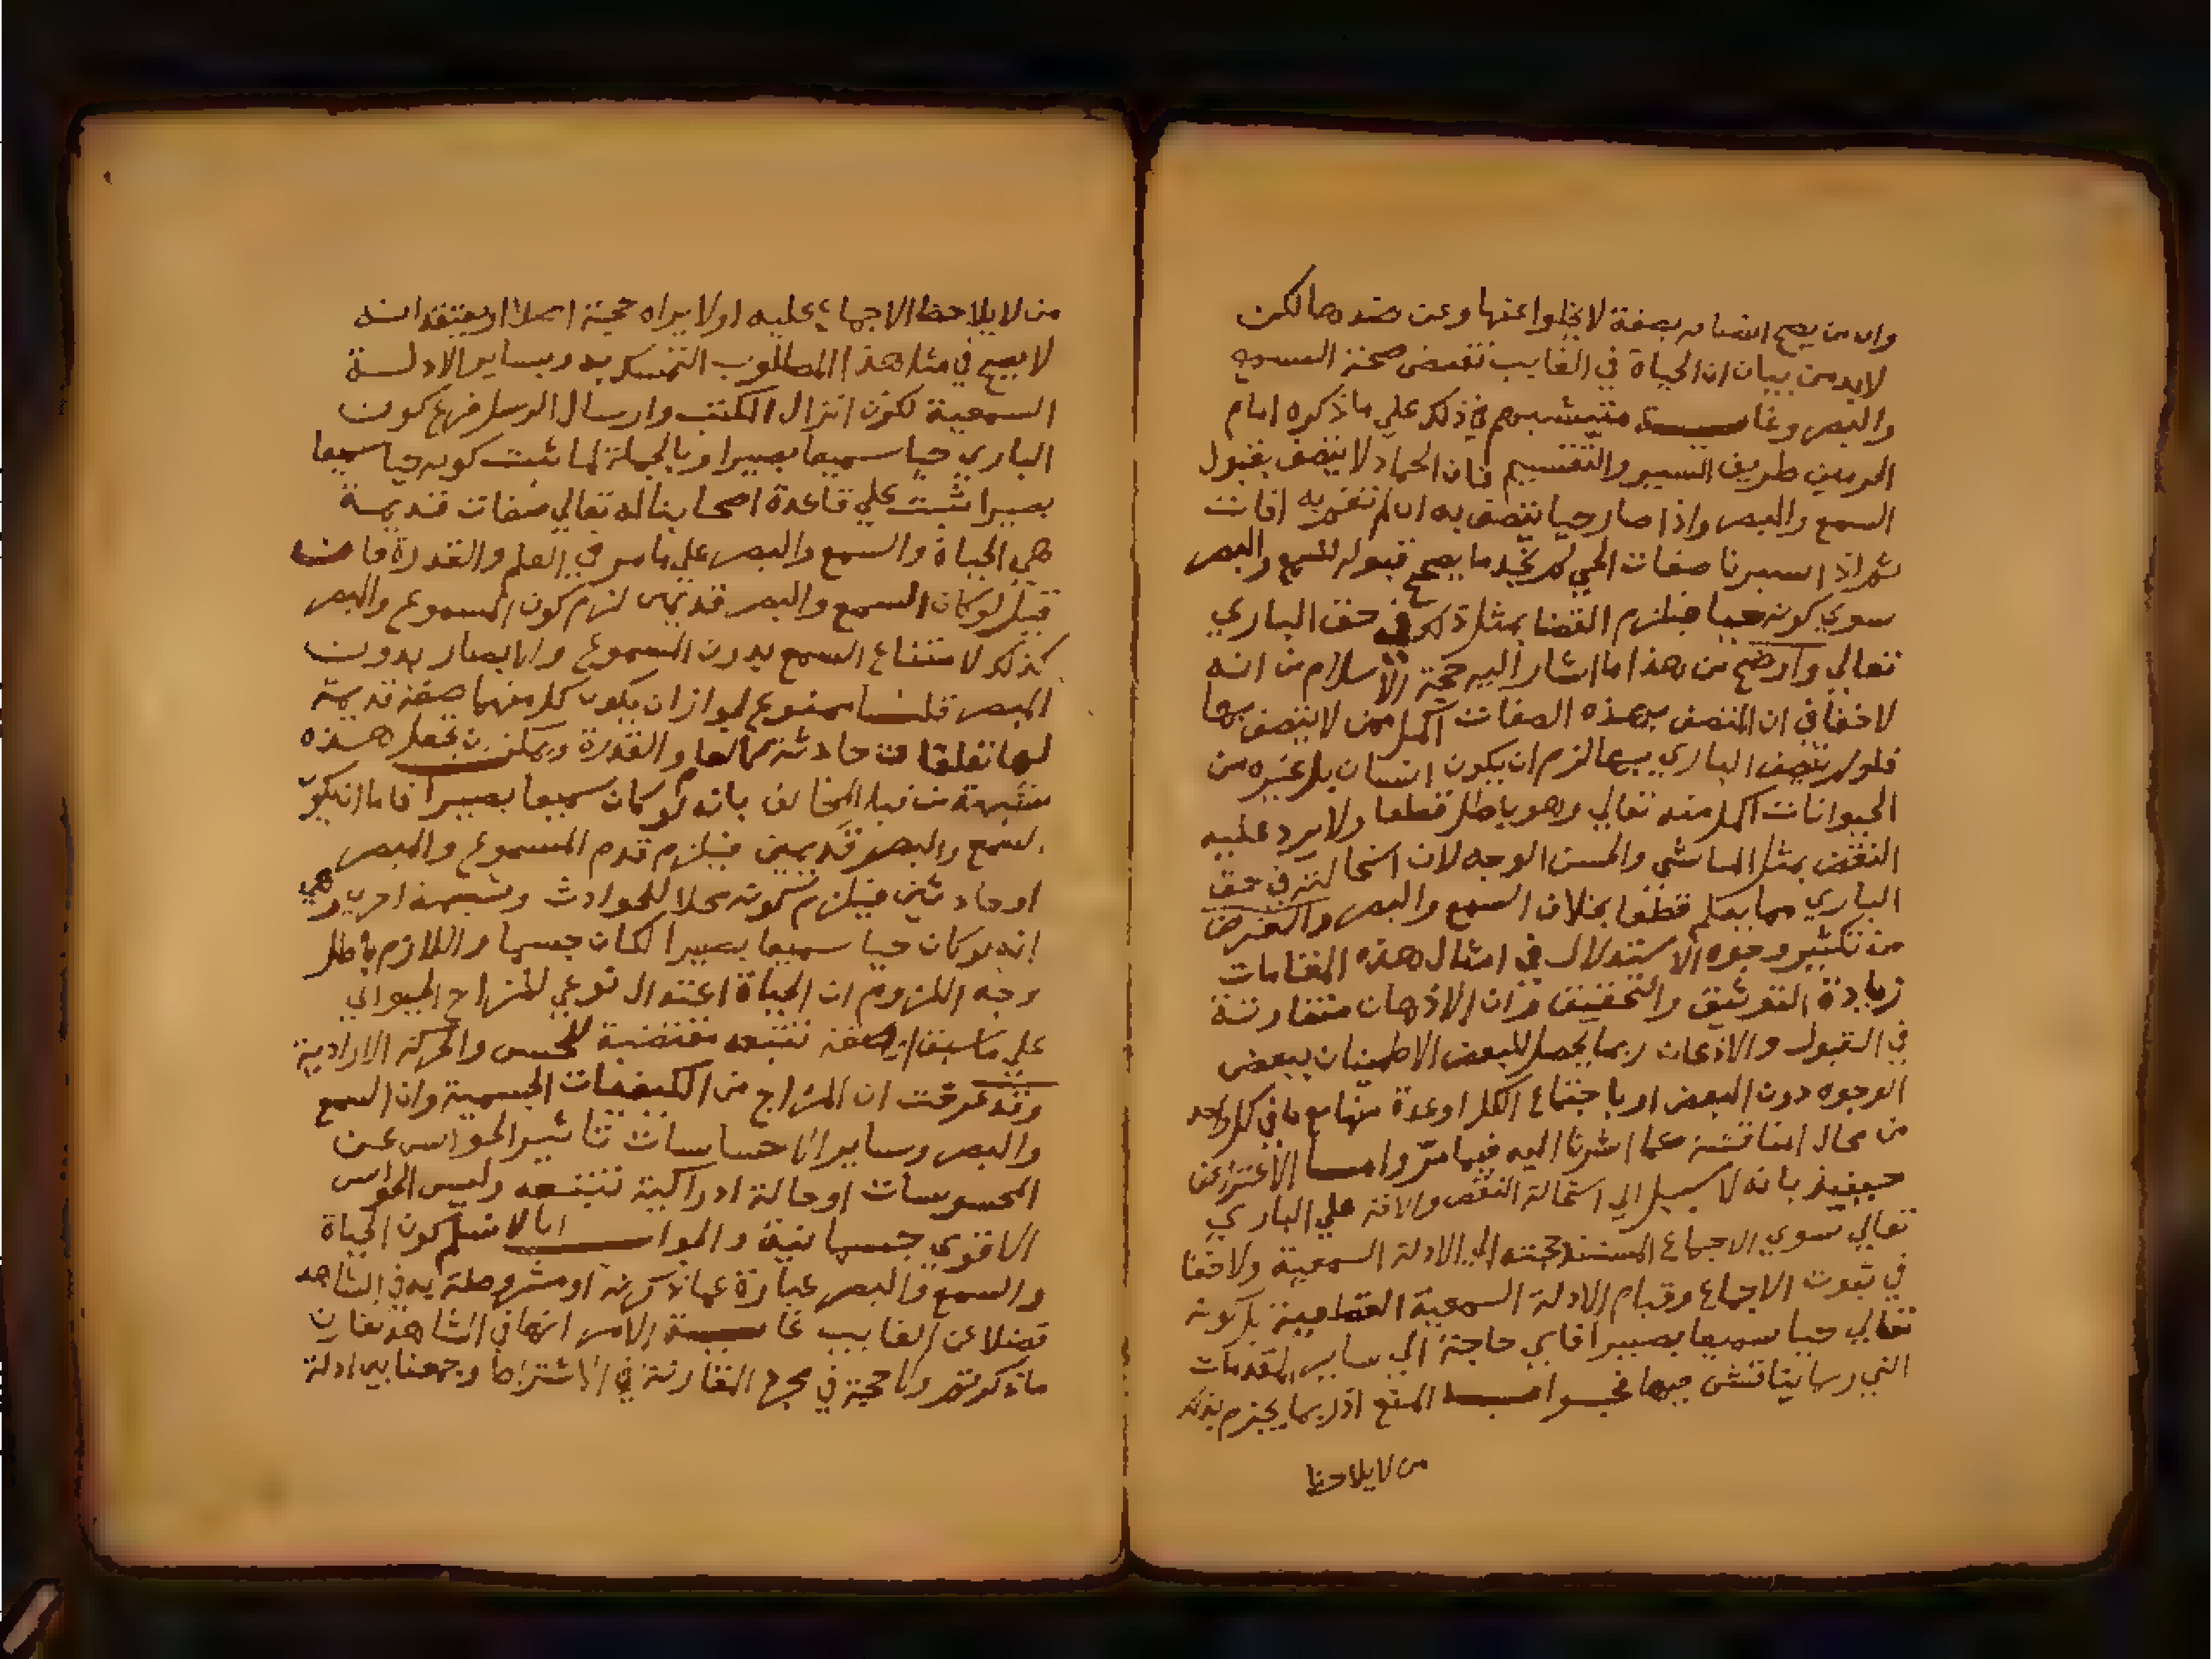 وان من يصح اتصافه بصفة لا يخلوا عنها وعن ضدها لكن
لابد من بيان ان الحياة في الغايب تقتضي صحة السمع
والبصر وغاية متشبثهم في ذلك علي ما ذكره امام
الحرمين طريق السبر والتقسيم فان الجماد لا يتصف بقبول
السمع والبصر واذا صار حيا يتصف به ان لم تقم به افات
ثم اذا سبرنا صفات الحي لم نجد ما يصحح قبوله للسمع والبصر
سوي كونه حيا فيلزم القضا بمثل ذلك في حق الباري
تعالي واوضح من هذا ما اشار اليه حجة الاسلام من انه
لا خفا في ان المتصف بهذه الصفات اكمل ممن لا يتصف بها
فلو لم يتصف الباري بها لزم ان يكون انسان بل غيره من
الحيوانات اكمل منه تعالي وهو باطل قطعا ولا يرد عليه
النقض بمثل الماشي والحسن الوجه لان استحالته في حق
الباري مما يعلم قطعا بخلاف السمع والبصر والغرض
من تكثير وجوه الاستدلال في امثال هذه المقامات
زيادة التوثيق والتحقيق وان الاذهان متفاوتة
في القبول والاذعان ربما يحصل للبعض الاطمينان ببعض
الوجوه دون البعض او باجتماع الكل او عدة منها مع ما في كل واحد
من مجال المناقشة مما اشرنا اليه فيما مر واما الاعتراض
حينيذ بانه لا سبيل الي استحالة النقص والافة علي الباري
تعالي سوي الاجماع المستند حجته الي الادلة السمعية ولا خفا
في ثبوت الاجماع وقيام الادلة السمعية القطعية بل كونه
تعالي حيا سميعا بصيرا فاي حاجة الي ساير المقدمات
التي ربما يناقش فيها فجوابه المنع اذ ربما يجزم بذلك
من لا يلاحظ
من لا يلاحظ الاجماع عليه او لا يراه حجة اصلا او يعتقد انه
لا يصح في مثل هذا المطلوب التمسك به وبساير الادلة
السمعية لكون انزال الكتب وارسال الرسل فرع كون
الباري حيا سميعا بصيرا وبالجملة لما ثبت كونه حيا سميعا
بصيرا ثبت علي قاعدة اصحابنا له تعالي صفات قديمة
هي الحياة والسمع والبصر علي ما مر في العلم والقدرة فان
قيل لو كان السمع والبصر قديمين لزم كون المسموع والبصر
كذلك لامتناع السمع بدون المسموع والابصار بدون
المبصر قلنا ممنوع لجواز ان يكون كل منهما صفة قديمة
لها تعلقات حادثة كالعلم والقدرة ويمكن ان يجعل هذه
شبهة من قبل المخالف بانه لو كان سميعا بصيرا فاما ان يكون
السمع والبصر قديمين فيلزم قدم المسموع والمبصر
او حادثين فيلزم كونه محلا للحوادث وشبهة اخري وهي
انه لو كان حيا سميعا بصيرا لكان جسما واللازم باطل
وجه اللزوم ان الحياة اعتدال نوعي للمزاج الحيواني
علي ما سبق او صفة تتبعه مقتضية للحس والحركة الارادية
وقد عرفت ان المزاج من الكيفيات الجسمية وان السمع
والبصر وساير الاحساسات تاثير الحواس عن
المحسوسات او حالة ادراكية تتبعه وليس الحواس
الا قوي جسمانية والجواب انا لا نسلم كون الحياة
والسمع والبصر عبارة عما ذكرته او مشروطة به في الشاهد
فضلا عن الغايب غاية الامر انها في الشاهد تقارن
ما ذكرتم ولا حجة في مجرد المقارنة في الاشتراط وجمعنا بين ادلة